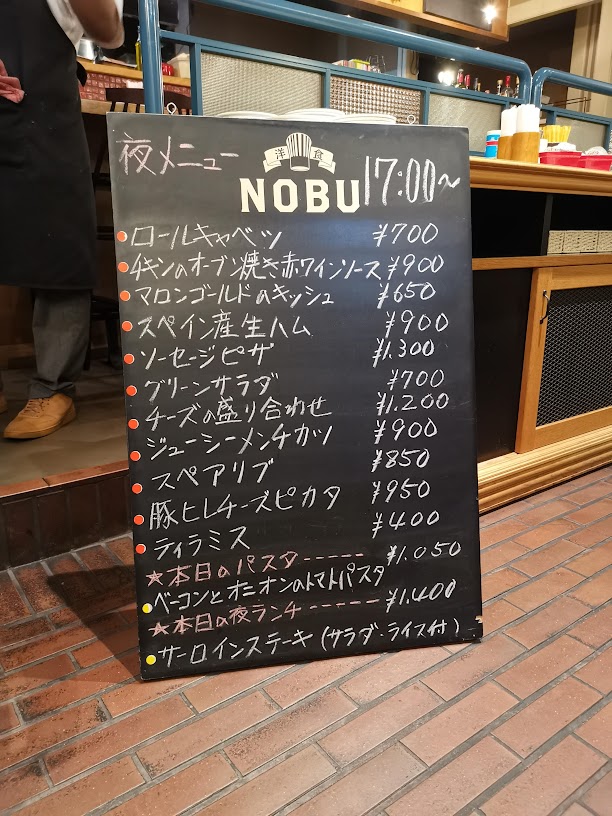 夜メニュー
洋食
NOBU
17:00~
ロールキャベツ ¥700
チキンのオーブン焼き赤ワインソース ¥900
マロンゴールドのキッシュ ¥650
スペイン産生ハム ¥900
ソーセージピザ ¥1.300
グリーンサラダ ¥700
チーズの盛り合わせ ¥1.200
ジューシーメンチカツ ¥900
スペアリブ ¥850
豚ヒレチーズピカタ ¥950
ティラミス ¥400
★本日のパスタ----- ¥1.050
ベーコンとオニオンのトマトパスタ
★本日の夜ランチ------ ¥1.400
サーロインステーキ(サラダ・ライス付)